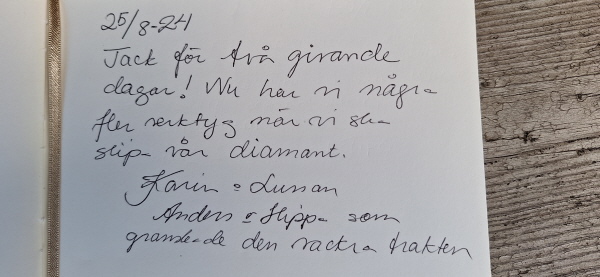 25/8-24
Tack för två givande
dagar! Nu har vi några
fler verktyg när vi ska
slipa vår diamant.
Karin o
Anders o som
granskade den vackra trakten